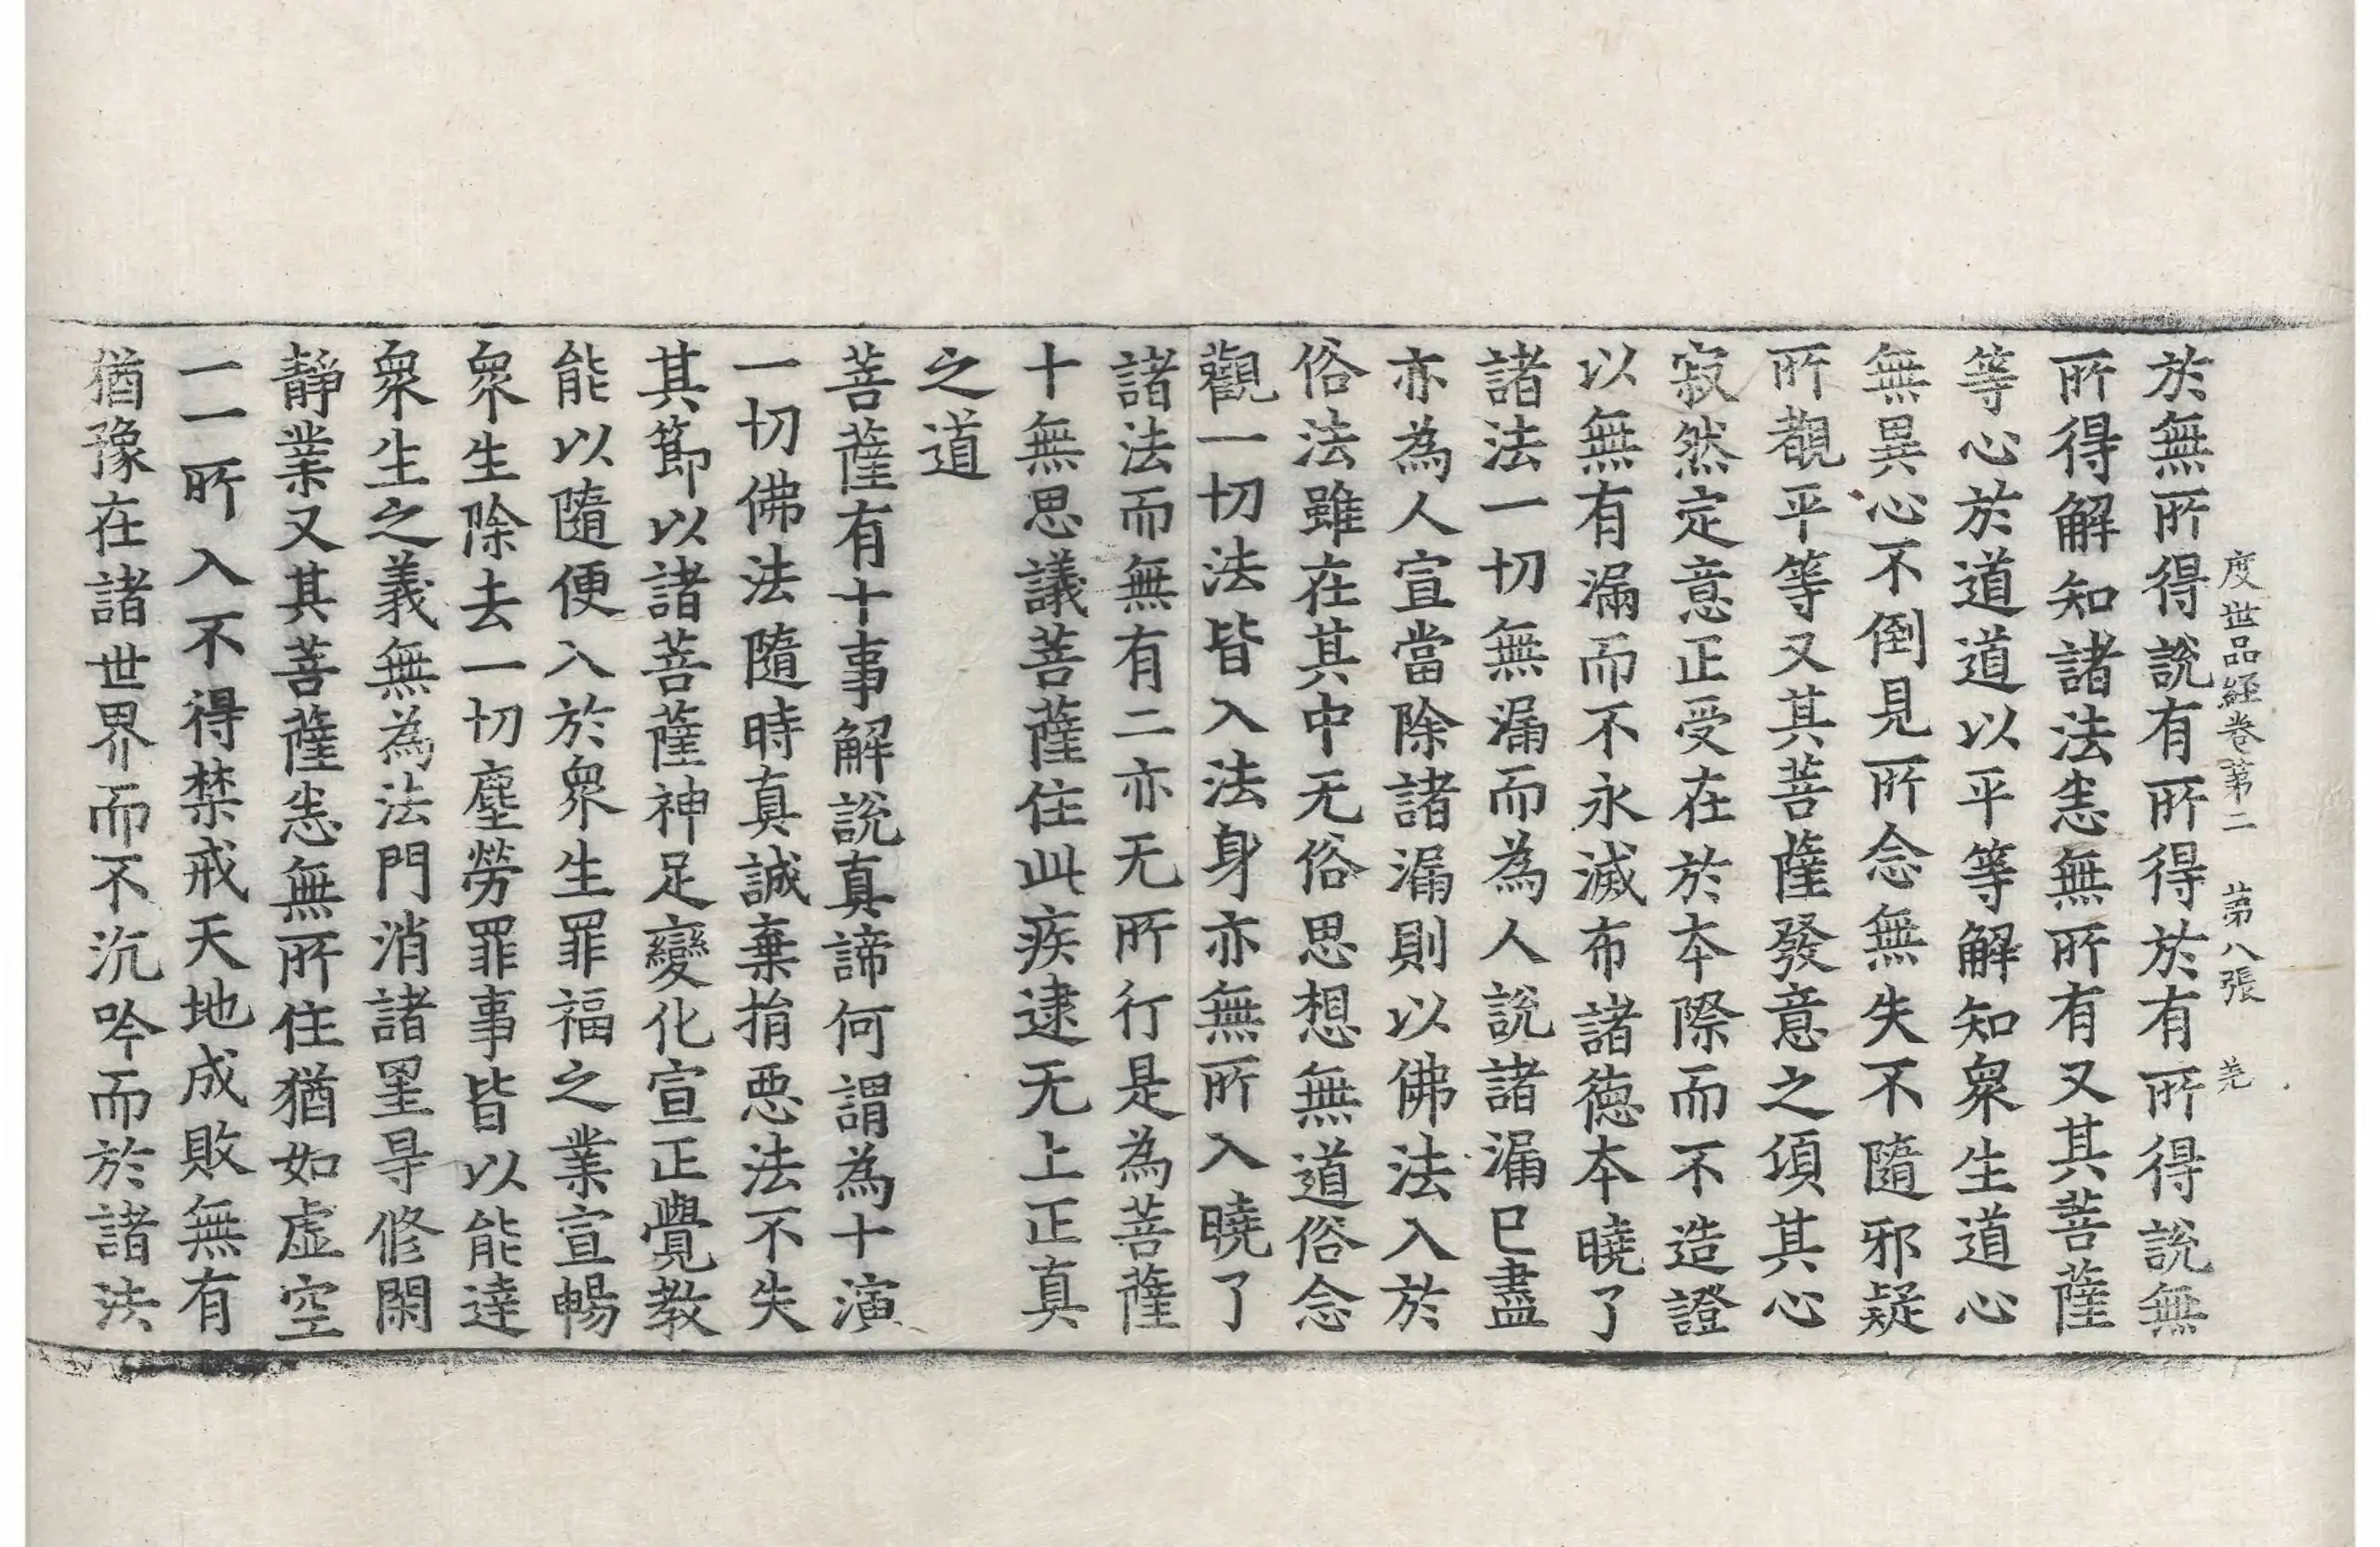 度世品經卷第二 第八張 羌
於無所得說有所得於有所得說無
所得解知諸法悉無所有又其菩薩
等心於道道以平等解知衆生道心
無異心不倒見所念無失不隨邪疑
所覩平等又其菩薩發意之頃其心
寂然定意正受在於本際而不造證
以無有漏而不永滅布諸德本曉了
諸法一切無漏而為人說諸漏已盡
亦為人宣當除諸漏則以佛法入於
俗法雖在其中无俗思想無道俗念
觀一切法皆入法身亦無所入曉了
諸法而無有二亦无所行是為菩薩
十無思議菩薩住此疾逮无上正真
之道
菩薩有十事解說真諦何謂為十演
一切佛法隨時真誠棄捐惡法不失
其節以諸菩薩神足變化宣正覺教
能以隨便入於衆生罪福之業宣暢
衆生除去一切塵勞罪事皆以能達
衆生之義無為法門消諸罣㝵修閑
靜業又其菩薩悉無所住猶如虛空
一一所入不得禁戒天地成敗無有
猶豫在諸世界而不沉吟而於諸法